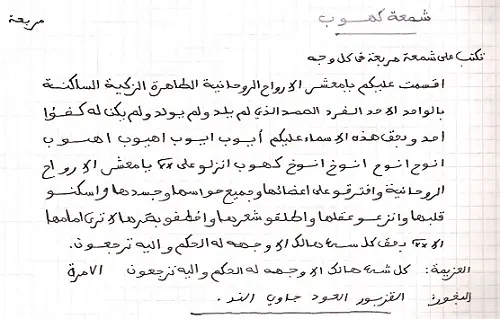 شمعة كهوب
مربعة
تكتب على شمعة مربعة فى كل وجه
اقسمت عليكم يامعشر الارواح الروحانية الطاهرة الزكية الساكنة
بالواحد الاحد الفرد الصمد الذي لم يلد ولم يولد ولم يكن له كفؤا
احد وبحق هذه الاسماء عليكم أيوب ايوب اهيوب اهيوب
انوح انوح انوخ انوخ كهوب انزلو على xx يا معشر الارواح
الروحانية وافترقو على اعضائها وجميع حواسها وجسدها واسكنو
قلبها وانزعو عقلها واطلقو شعرها واخطفو بصرها لا ترى امامها
الا xx بحق كل شيء هالك الا وجهه له الحكم واليه ترجعون.
العزيمة: كل شيء هالك الا وجهه له الحكم واليه ترجعون الامرة
البخور: القزبور العود جاوي الند.